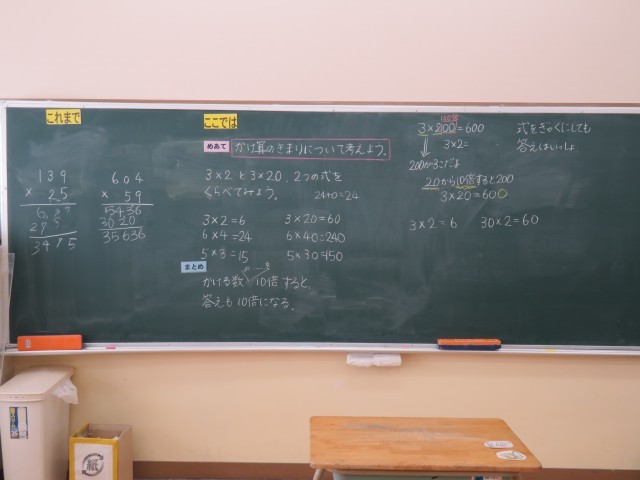 これまで
139
× 25
3475
604
× 59
5436
3020
35636
ここでは
めあて かけ算のきまりについて考えよう。
3×2と3×20、2つの式を
くらべてみよう。
3×2=6 3×20=60
6×4=24 6×40=240
5×3=15 5×30=150
まとめ
かける数 10倍すると、
答えも10倍になる。
3×200=600
3×2=
200が3こだよ
20から10倍すると200
3×20=600
3×2=6 30×2=60
式をぎゃくにしても
答えはいっしょ
紙